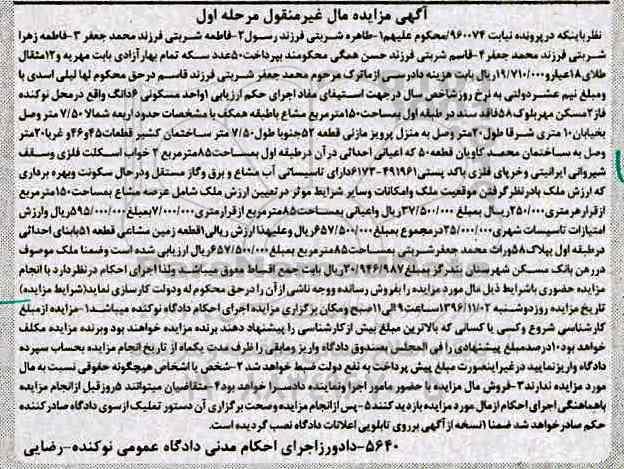 آگهی مزایده مال غیرمنقول مرحله اول
نظر باینکه درپرونده نیابت ۹۶۰۰۷۴/محکوم علیهم۱-طاهره شربتی فرزند رسول۲-فاطمه شربتی فرزند محمد جعفر ۳-فاطمه زهرا
شربتی فرزند محمد جعفر۴-قاسم شربتی فرزند حسن همگی محکومند بپرداخت۵۰عدد سکه تمام بهارآزادی بابت مهریه و۱۲مثقال
طلای۱۸عیارو۱۹/۷۱۰/۰۰۰ریال بابت هزینه دادرسی ازماترک مرحوم محمد جعفر شربتی فرزند قاسم درحق محکوم لها لیلی اسدی با
ومبلغ نیم عشردولتی به نرخ روزشاخص سال درجهت استیفای مفاد اجرای حکم ارزیابی ۱واحد مسکونی ۶دانگ واقع درمحل نوکنده
فاز۲مسکن مهربلوک۵۸فاقد سند در طبقه اول بمساحت۱۵۰مترمربع مشاع باطبقه همکف با مشخصات حدود اربعه شمالا ۷/۵۰ متر وصل
بخیابان۱۰ متری شرقا طول۲۰متر وصل به منزل پرویز مازنی قطعه ۵۲جنوبا طول۷/۵۰ متر ساختمان کشیر قطعات۴۵و۴۶و غربا۲۰متر
وصل به ساختمان محمد کاویان قطعه۵۰ که اعیانی احداثی درآن درطبقه اول بمساحت۸۵مترمربع ۲ خواب اسکلت فلزی وسقف
شیروانی ایرانیتی وخرپای فلزی باکد پستی۴۹۱۹۶۱-۶۱۷۳دارای تاسیساتی آب مشاع و برق وگاز مستقل ودرحال سکونت وبهره برداری
که ارزش ملک بادرنظرگرفتن موقعیت ملک وامکانات وسایر شرایط موثر درتعیین ارزش ملک شامل عرصه مشاع بمساحت۱۵۰مترمربع
ازقرارهرمتری۲۵۰/۰۰۰ریال بمبلغ ۳۷/۵۰۰/۰۰۰ریال واعیانی بمساحت۸۵مترمربع ازقرارمتری۷/۰۰۰/۰۰۰بمبلغ۵۹۵/۰۰۰/۰۰۰ریال وارزش
امتیازات تاسیسات شهری۲۵/۰۰۰/۰۰۰درمجموع بمبلغ۶۵۷/۵۰۰/۰۰۰ریال وعلیهذا ارزش ریالی۱قطعه زمین مشاعی قطعه ۵۱بابنای احداثی
درطبقه اول بپلاک۵۸وراث محمد جعفرشربتی بمساحت۸۵مترمربع بمبلغ۶۵۷/۵۰۰/۰۰۰ریال ارزیابی شده است وضمنا ملک موصوف
دررهن بانک مسکن شهرستان بندرگز بمبلغ۳۰/۹۴۶/۹۸۷ریال بابت جمع اقساط معوق میباشد ولذا اجرای احکام درنظردارد با انجام
مزایده حضوری باشرایط ذیل مال مورد مزایده را بفروش رسانده ووجه ناشی ازآن را درحق محکوم له ودولت کارسازی نماید(شرایط مزایده)
تاریخ مزایده روزدوشنبه ۱۳۹۶/۱۱/۰۲ساعت۹الی۱۱صبح ومکان برگزاری مزایده اجرای احکام دادگاه نوکنده میباشد۱-مزایده ازمبلغ
کارشناسی شروع وکسی یا کسانی که بالاترین مبلغ بیش ازکارشناسی را پیشنهاد دهند برنده مزایده خواهند بود وبرنده مزایده مکلف
خواهد بود۱۰درصدمبلغ پیشنهادی را فی المجلس بصندوق دادگاه واریز ومابقی را ظرف مدت یکماه از تاریخ انجام مزایده بحساب سپرده
دادگاه واریزنمایید درغیراینصورت مبلغ پیش پرداخت به نفع دولت ضبط خواهد شد۲-شخص یا اشخاص هیچگونه حقوقی نسبت به مال
مورد مزایده ندارند۳-فروش مال مزایده با حضور مامور اجرا ونماینده دادسرا خواهد بود۴-متقاضیان میتوانند ۵روز قبل ازانجام مزایده
باهماهنگی اجرای احکام ازمال مورد مزایده بازدید کنند۵-پس ازانجام مزایده وصحت برگزاری آن دستور تملیک ازسوی دادگاه صادرکننده
حکم صادرخواهد شد ضمنا۱نسخه ازآگهی برروی تابلویی اعلانات دادگاه نصب گردیده است.
۵۶۴۰-دادورزاجرای احکام مدنی دادگاه عمومی نوکنده-رضایی